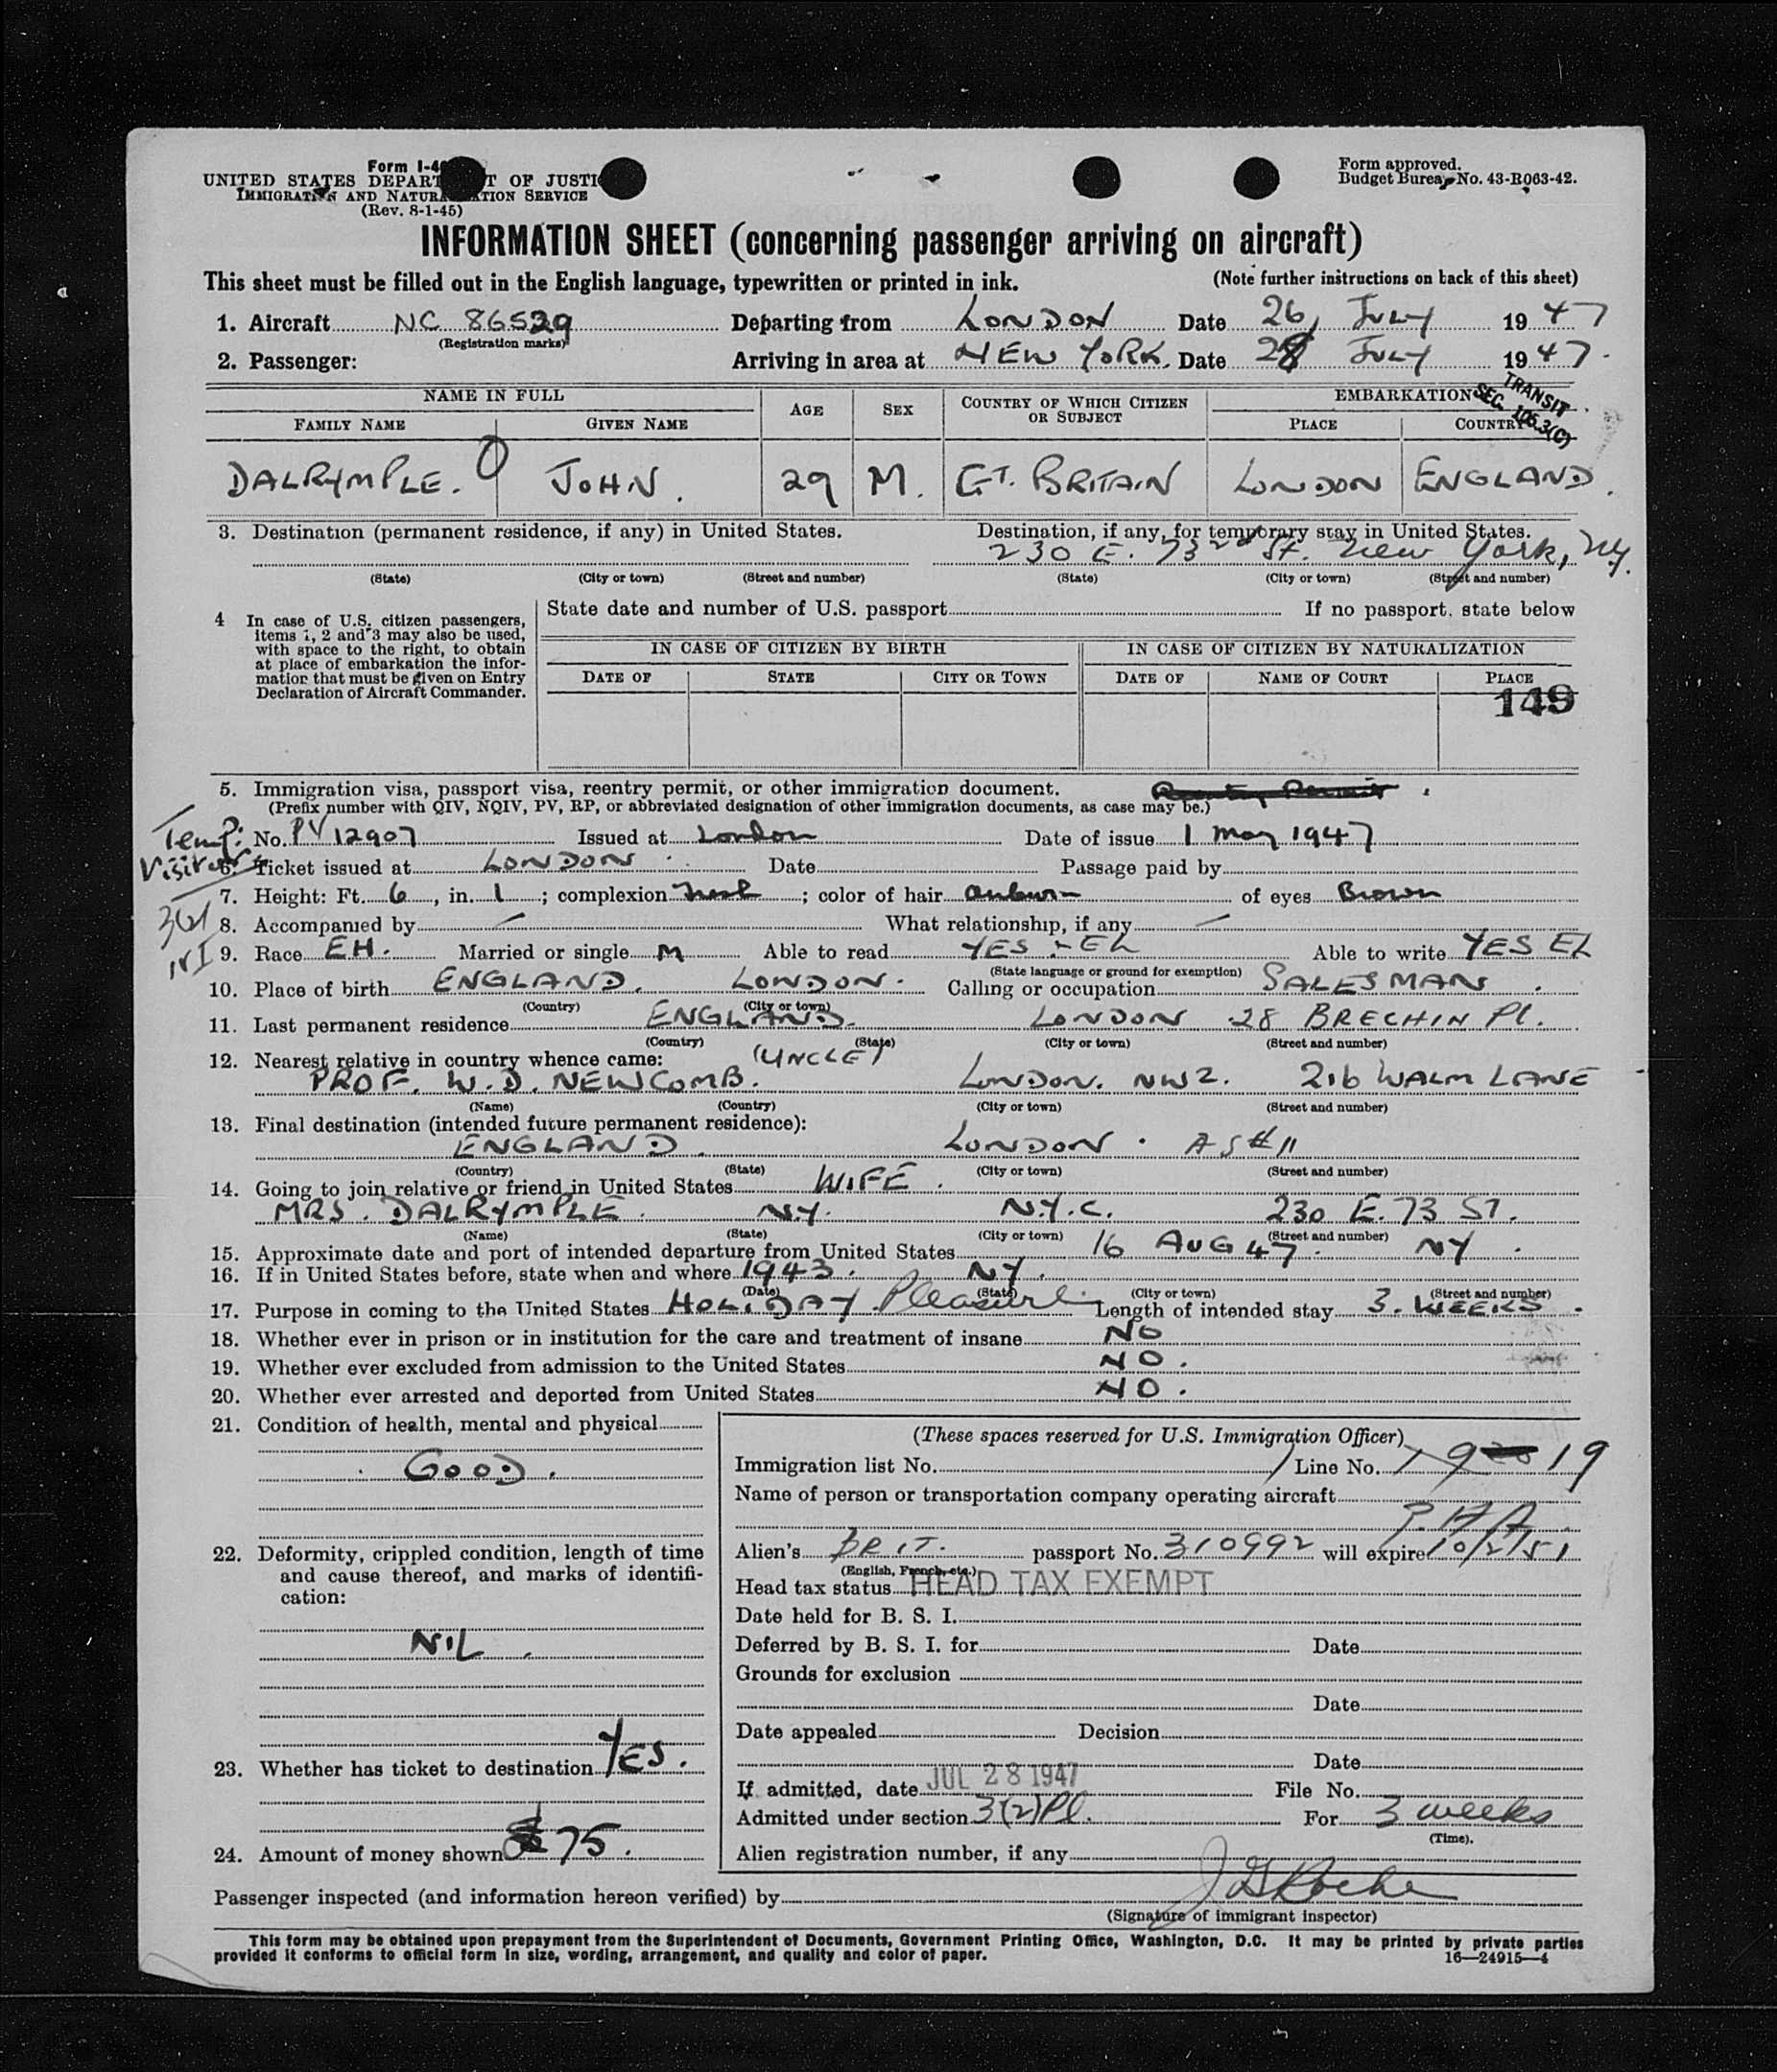 Form I-4
UNITED STATES DEPART T OF JUSTI
IMMIGRATION AND NATUR ATION SERVICE
(Rev. 8-1-45)
Form approved.
Budget Bureau No. 43-R063-42.
INFORMATION SHEET (concerning passenger arriving on aircraft)
This sheet must be filled out in the English language, typewritten or printed in ink. (Note further instructions on back of this sheet)
1. Aircraft NC 86529 Departing from LONDON Date 26, JULY 1947
(Registration marks)
2. Passenger: Arriving in area at NEW YORK. Date 28 JULY 1947.
TRANSIT
SEC. 105.3(C)
NAME IN FULL AGE SEX COUNTRY OF WHICH CITIZEN OR SUBJECT EMBARKATION
FAMILY NAME GIVEN NAME PLACE COUNTRY
DALRYMPLE. JOHN. 29 M. GT. BRITAIN LONDON ENGLAND.
3. Destination (permanent residence, if any) in United States. Destination, if any, for temporary stay in United States.
230 E. 73rd St. New York, NY.
(State) (City or town) (Street and number) (State) (City or town) (Street and number)
4 In case of U.S. citizen passengers, items 1, 2 and 3 may also be used, with space to the right, to obtain at place of embarkation the information that must be given on Entry Declaration of Aircraft Commander.
State date and number of U.S. passport If no passport, state below
IN CASE OF CITIZEN BY BIRTH IN CASE OF CITIZEN BY NATURALIZATION
DATE OF STATE CITY OR TOWN DATE OF NAME OF COURT PLACE
149
5. Immigration visa, passport visa, reentry permit, or other immigration document.
(Prefix number with QIV, NQIV, PV, RP, or abbreviated designation of other immigration documents, as case may be.)
Temp. Visitor
No. PV 12907 Issued at London Date of issue 1 May 1947
6. Ticket issued at LONDON Date Passage paid by
7. Height: Ft. 6, in. 1; complexion fresh; color of hair auburn of eyes Brown
8. Accompanied by — What relationship, if any —
9. Race EH. Married or single M Able to read YES - EL Able to write YES EL
(State language or ground for exemption)
10. Place of birth ENGLAND. LONDON. Calling or occupation SALESMAN.
(Country) (City or town)
11. Last permanent residence ENGLAND. LONDON 28 BRECHIN Pl.
(Country) (State) (City or town) (Street and number)
12. Nearest relative in country whence came: (UNCLE)
PROF. W. D. NEWCOMB. LONDON. NW2. 216 WALM LANE
(Name) (Country) (City or town) (Street and number)
13. Final destination (intended future permanent residence):
ENGLAND. LONDON. AS # 11
(Country) (State) (City or town) (Street and number)
14. Going to join relative or friend in United States WIFE.
MRS. DALRYMPLE. N.Y. N.Y.C. 230 E. 73 ST.
(Name) (State) (City or town) (Street and number)
15. Approximate date and port of intended departure from United States 16 AUG 47. NY.
16. If in United States before, state when and where 1943. NY.
(Date) (State) (City or town) (Street and number)
17. Purpose in coming to the United States HOLIDAY Pleasure. Length of intended stay 3. WEEKS.
18. Whether ever in prison or in institution for the care and treatment of insane NO
19. Whether ever excluded from admission to the United States NO.
20. Whether ever arrested and deported from United States NO.
21. Condition of health, mental and physical
GOOD.
22. Deformity, crippled condition, length of time and cause thereof, and marks of identification:
NIL.
23. Whether has ticket to destination YES.
24. Amount of money shown $75.
(These spaces reserved for U.S. Immigration Officer)
Immigration list No. Line No. 19
Name of person or transportation company operating aircraft
P.A.A.
Alien's BRIT. passport No. 310992 will expire 10/2/51
(English, French, etc.)
Head tax status HEAD TAX EXEMPT
Date held for B. S. I.
Deferred by B. S. I. for Date
Grounds for exclusion
Date
Date appealed Decision
Date
If admitted, date JUL 28 1947 File No.
Admitted under section 3(2)Pl. For 3 weeks
(Time).
Alien registration number, if any
Passenger inspected (and information hereon verified) by
(Signature of immigrant inspector)
This form may be obtained upon prepayment from the Superintendent of Documents, Government Printing Office, Washington, D.C. It may be printed by private parties
provided it conforms to official form in size, wording, arrangement, and quality and color of paper. 16—24915—4